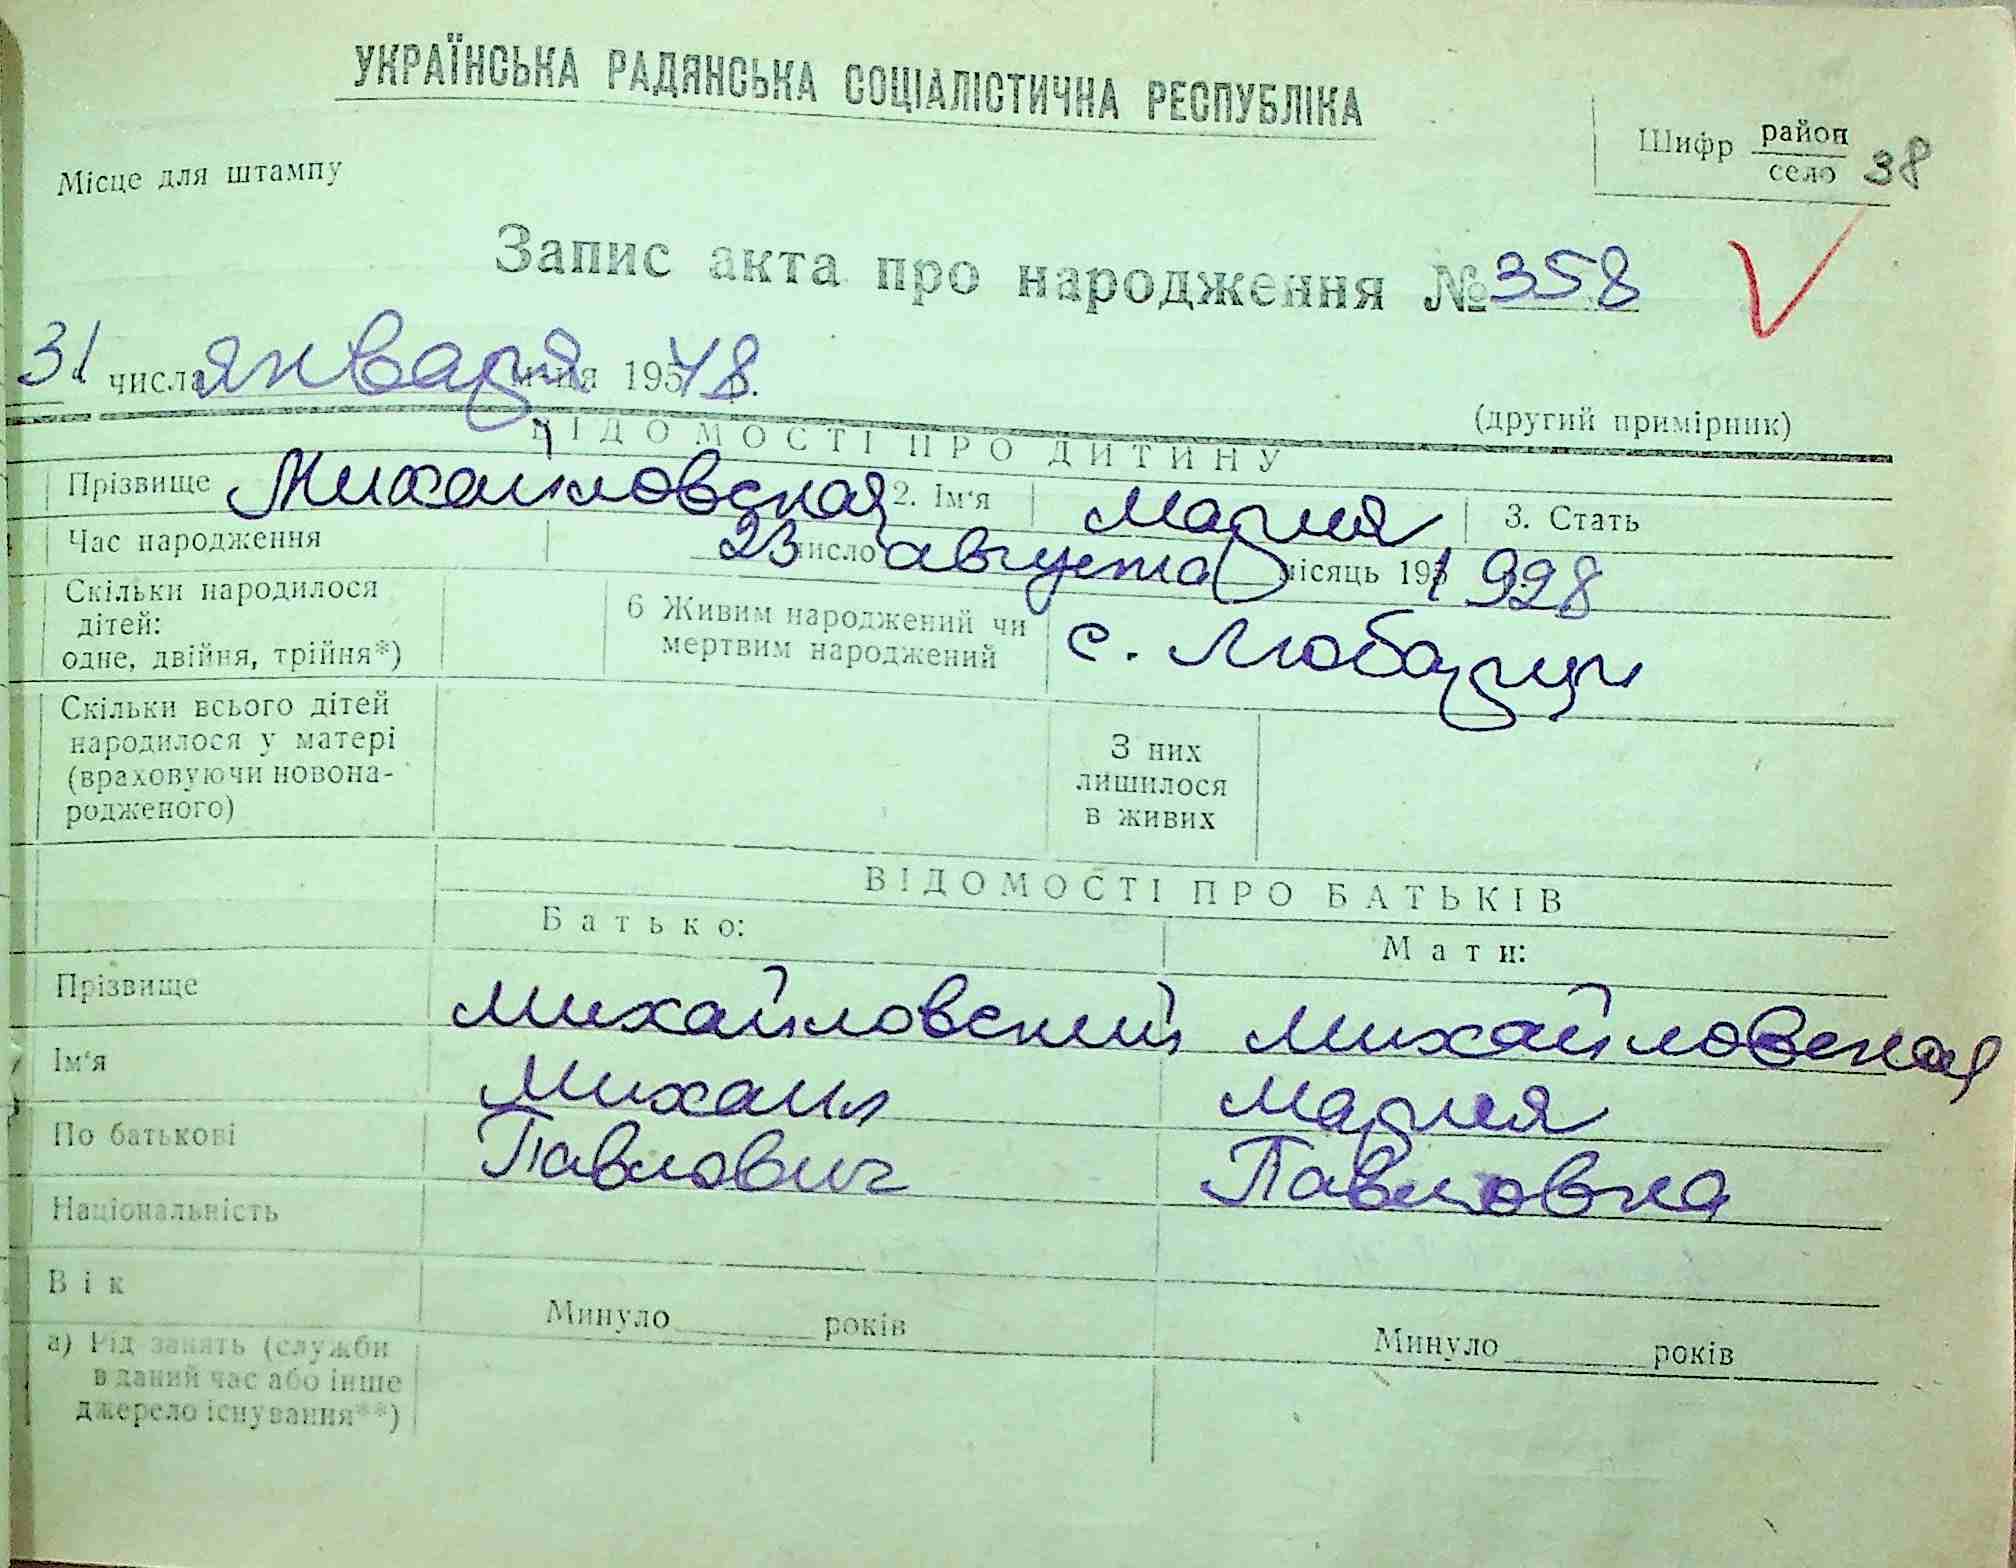 УКРАЇНСЬКА РАДЯНСЬКА СОЦІАЛІСТИЧНА РЕСПУБЛІКА
Шифр район село 38
Місце для штампу
Запис акта про народження № 358
31 числа января м-ця 195 48.
(другий примірник)
ВІДОМОСТІ ПРО ДИТИНУ
Прізвище Михайловская 2. Ім'я Мария 3. Стать
Час народження 23 число августа місяць 195 1928
Скільки народилося дітей: одне, двійня, трійня*)
6 Живим народжений чи мертвим народжений
с. Любарцы
Скільки всього дітей народилося у матері (враховуючи новона-родженого)
З них лишилося в живих
ВІДОМОСТІ ПРО БАТЬКІВ
Батько: Мати:
Прізвище Михайловский Михайловская
Ім'я Михаил Мария
По батькові Павлович Павловна
Національність
Вік Минуло років Минуло років
а) Рід занять (служби
в даний час або інше
джерело існування**)